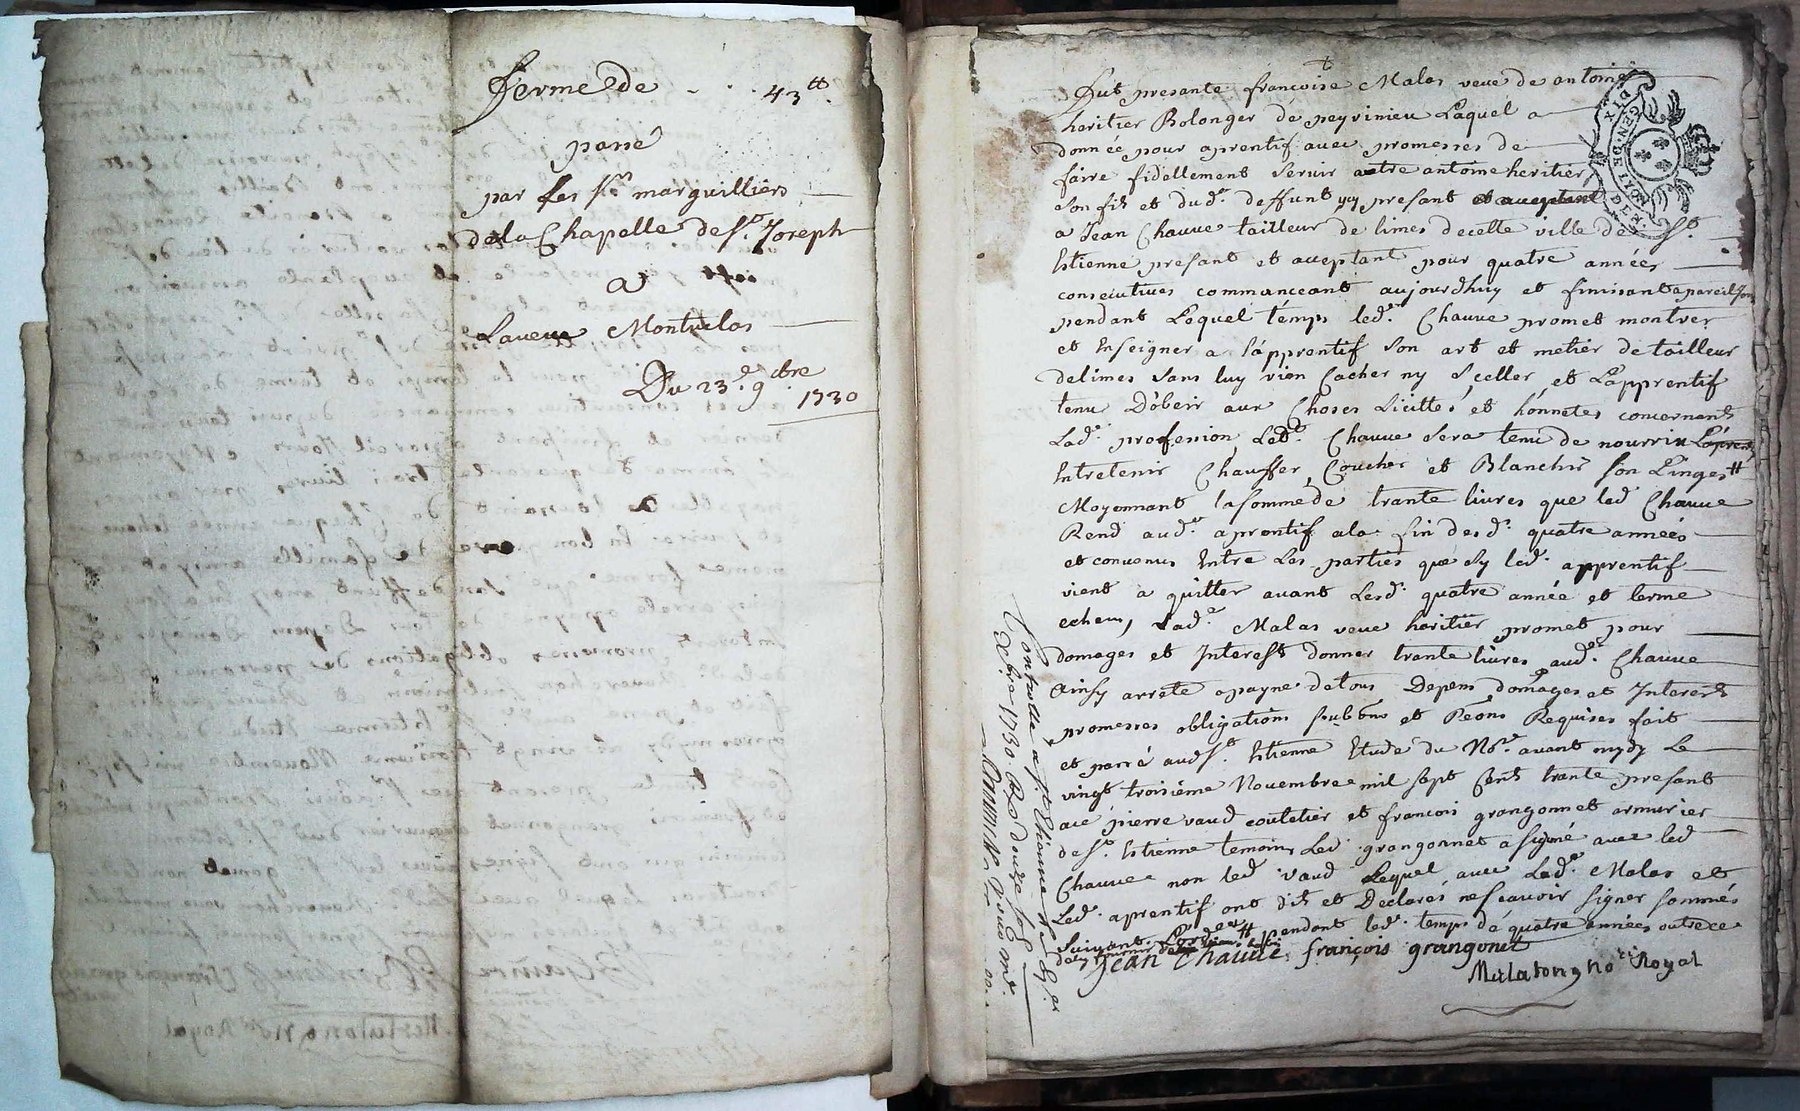 ferme de - . . 43 tt.
passé
par les Srs marguilliers
de la Chapelle de St. Joseph
a
La veuve Montuclas
Du 23.e 9bre
1730
fut presante françoise Malas veve de antoine
heritier Bolonger de peyrinieu Laquel a
donnee pour aprentif avec promesses de
faire fidellement servir antoine heritier
son fis et dud.t deffunt icy presant
a Jean Chauve tailleur de limes de cette ville de St.
Estienne presant et aceptant pour quatre années
consecutives commanceant aujourdhuy et finissant a pareil Jour
pendant Lequel temps led.t Chauve promet montrer
et Enseigner a l'apprentif son art et metier de tailleur
de limes sans luy rien Cacher ny Sçeller et L'apprentif
tenu D'obeir aux Choses Licittes et honnetes concernant
Lad.e profession, Led.t Chauve sera tenu de nourrir
Entretenir Chauffer, Coucher et Blanchir son Linges #
Moyennant la somme de trante livres que led Chauve
Rend aud.t aprentif a la fin desd. quatre années
et convenus Entre Les parties que sy led. apprentif
vient a quitter avant Lesd. quatre année et terme
echeu, Lad.e Malas veve heritier promet pour
domages et Interest donner trante livres aud.t Chauve
Ainsy arreté a payne de tous Depens domages et Interest
promesses obligations soubm et Reons Requises fait
et passé aud St. Estienne Etude du No.re avant mydy Le
vingt troisiéme Novembre mil sept Cent trante presant
pierre vaud coutelier et francois grangonnet armurier
de St. Estienne temoins Led. grangonnet a signé avec led
Chauve non led vaud Lequel avec Lad.e Malas et
Led. aprentif ont dit et Declarés ne scavoir signer sommés
suivant L'ord.ce # pendant led. temps de quatre années outre ce
Jean Chauve françois grangonet
no.re Royal
Controllé a St Etienne le
1730 Rs douze s.
DIX
GEN. DE LION